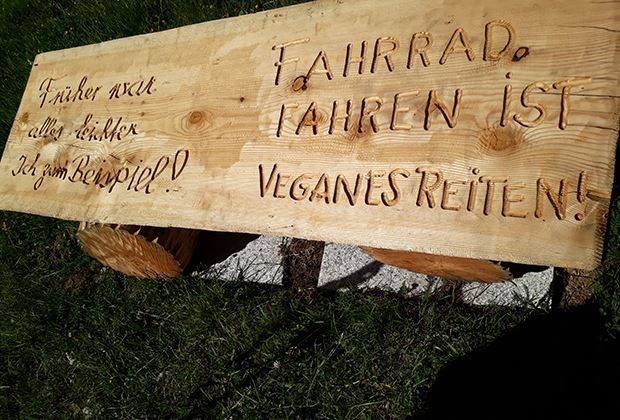 Früher war
alles leichter
Ich zum Beispiel!
FAHRRAD.
FAHREN IST
VEGANES REITEN!